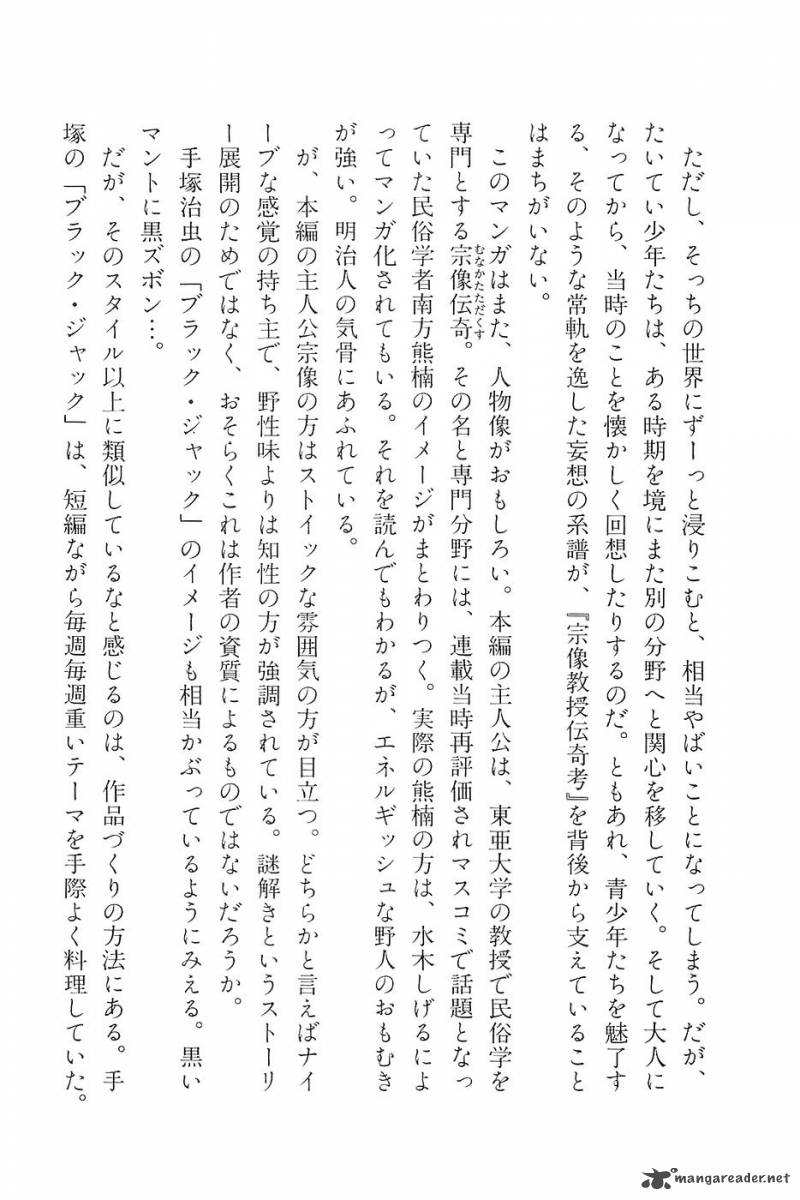 ただし、そっちの世界にずーっと浸りこむと、相当やばいことになってしまう。だが、
たいてい少年たちは、ある時期を境にまた別の分野へと関心を移していく。そして大人に
なってから、当時のことを懐かしく回想したりするのだ。ともあれ、青少年たちを魅了す
る、そのような常軌を逸した妄想の系譜が、『宗像教授伝奇考』を背後から支えていること
はまちがいない。
このマンガはまた、人物像がおもしろい。本編の主人公は、東亜大学の教授で民俗学を
専門とする宗像伝奇。その名と専門分野には、連載当時再評価されマスコミで話題となっ
むなかたただくす
ていた民俗学者南方熊楠のイメージがまとわりつく。実際の熊楠の方は、水木しげるによ
ってマンガ化されてもいる。それを読んでもわかるが、エネルギッシュな野人のおもむき
が強い。明治人の気骨にあふれている。
が、本編の主人公宗像の方はストイックな雰囲気の方が目立つ。どちらかと言えばナイ
ーブな感覚の持ち主で、野性味よりは知性の方が強調されている。謎解きというストーリ
ー展開のためではなく、おそらくこれは作者の資質によるものではないだろうか。
手塚治虫の「ブラック・ジャック」のイメージも相当かぶっているようにみえる。黒い
マントに黒ズボン…。
だが、そのスタイル以上に類似しているなと感じるのは、作品づくりの方法にある。手
塚の「ブラック・ジャック」は、短編ながら毎週毎週重いテーマを手際よく料理していた。
mangareader.net